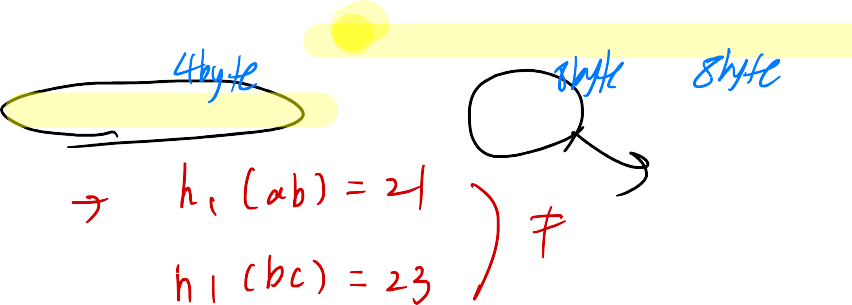 4byte 8byte 8byte
→ h₁ (ab) = 21
h₁ (bc) = 23 ) ≠